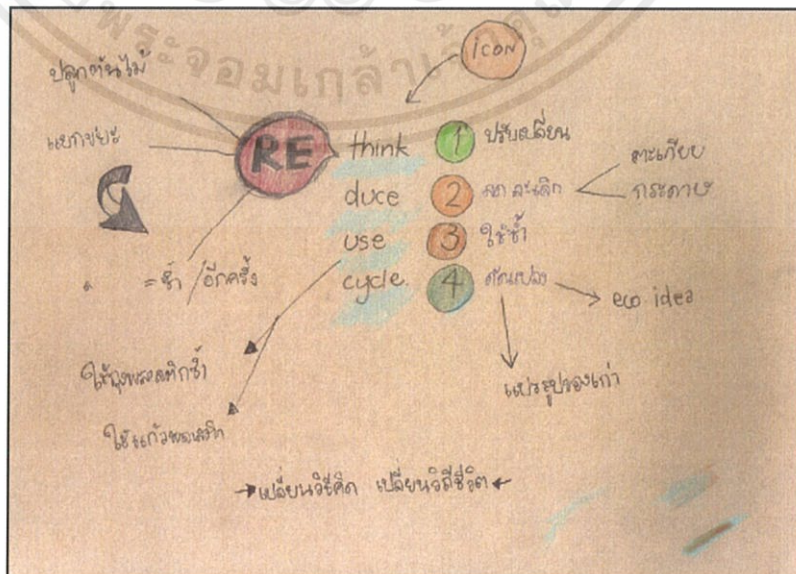 พระจอมเกล้าเจ้าคุณ
icon
ปลูกต้นไม้
แยกขยะ
RE
think 1 ปรับเปลี่ยน
duce 2 ลด ละเลิก
ตะเกียบ
กระดาษ
use 3 ใช้ซ้ำ
cycle. 4 ดัดแปลง
eco idea
= ซ้ำ / อีกครั้ง
ใช้ถุงพลาสติกซ้ำ
ใช้แก้วพลาสติก
แปรรูปของเก่า
เปลี่ยนวิธีคิด เปลี่ยนวิถีชีวิต